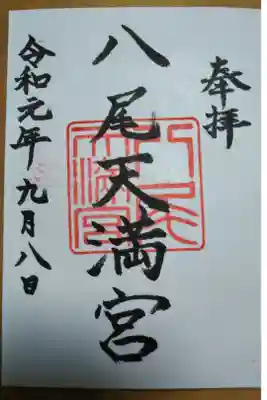 奉拝
八尾天満宮
令和元年九月八日